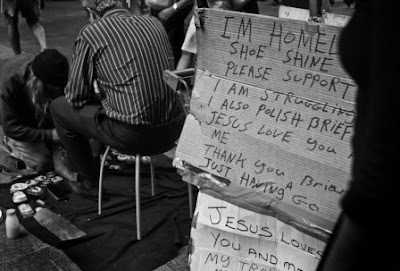 I'M HOMEL
SHOE SHINE
PLEASE SUPPORT
I AM STRUGGLING
I ALSO POLISH BRIEF
JESUS LOVE YOU
ME
THANK YOU
JUST HAVING A
GO
JESUS LOVES
YOU AND ME
MY TR